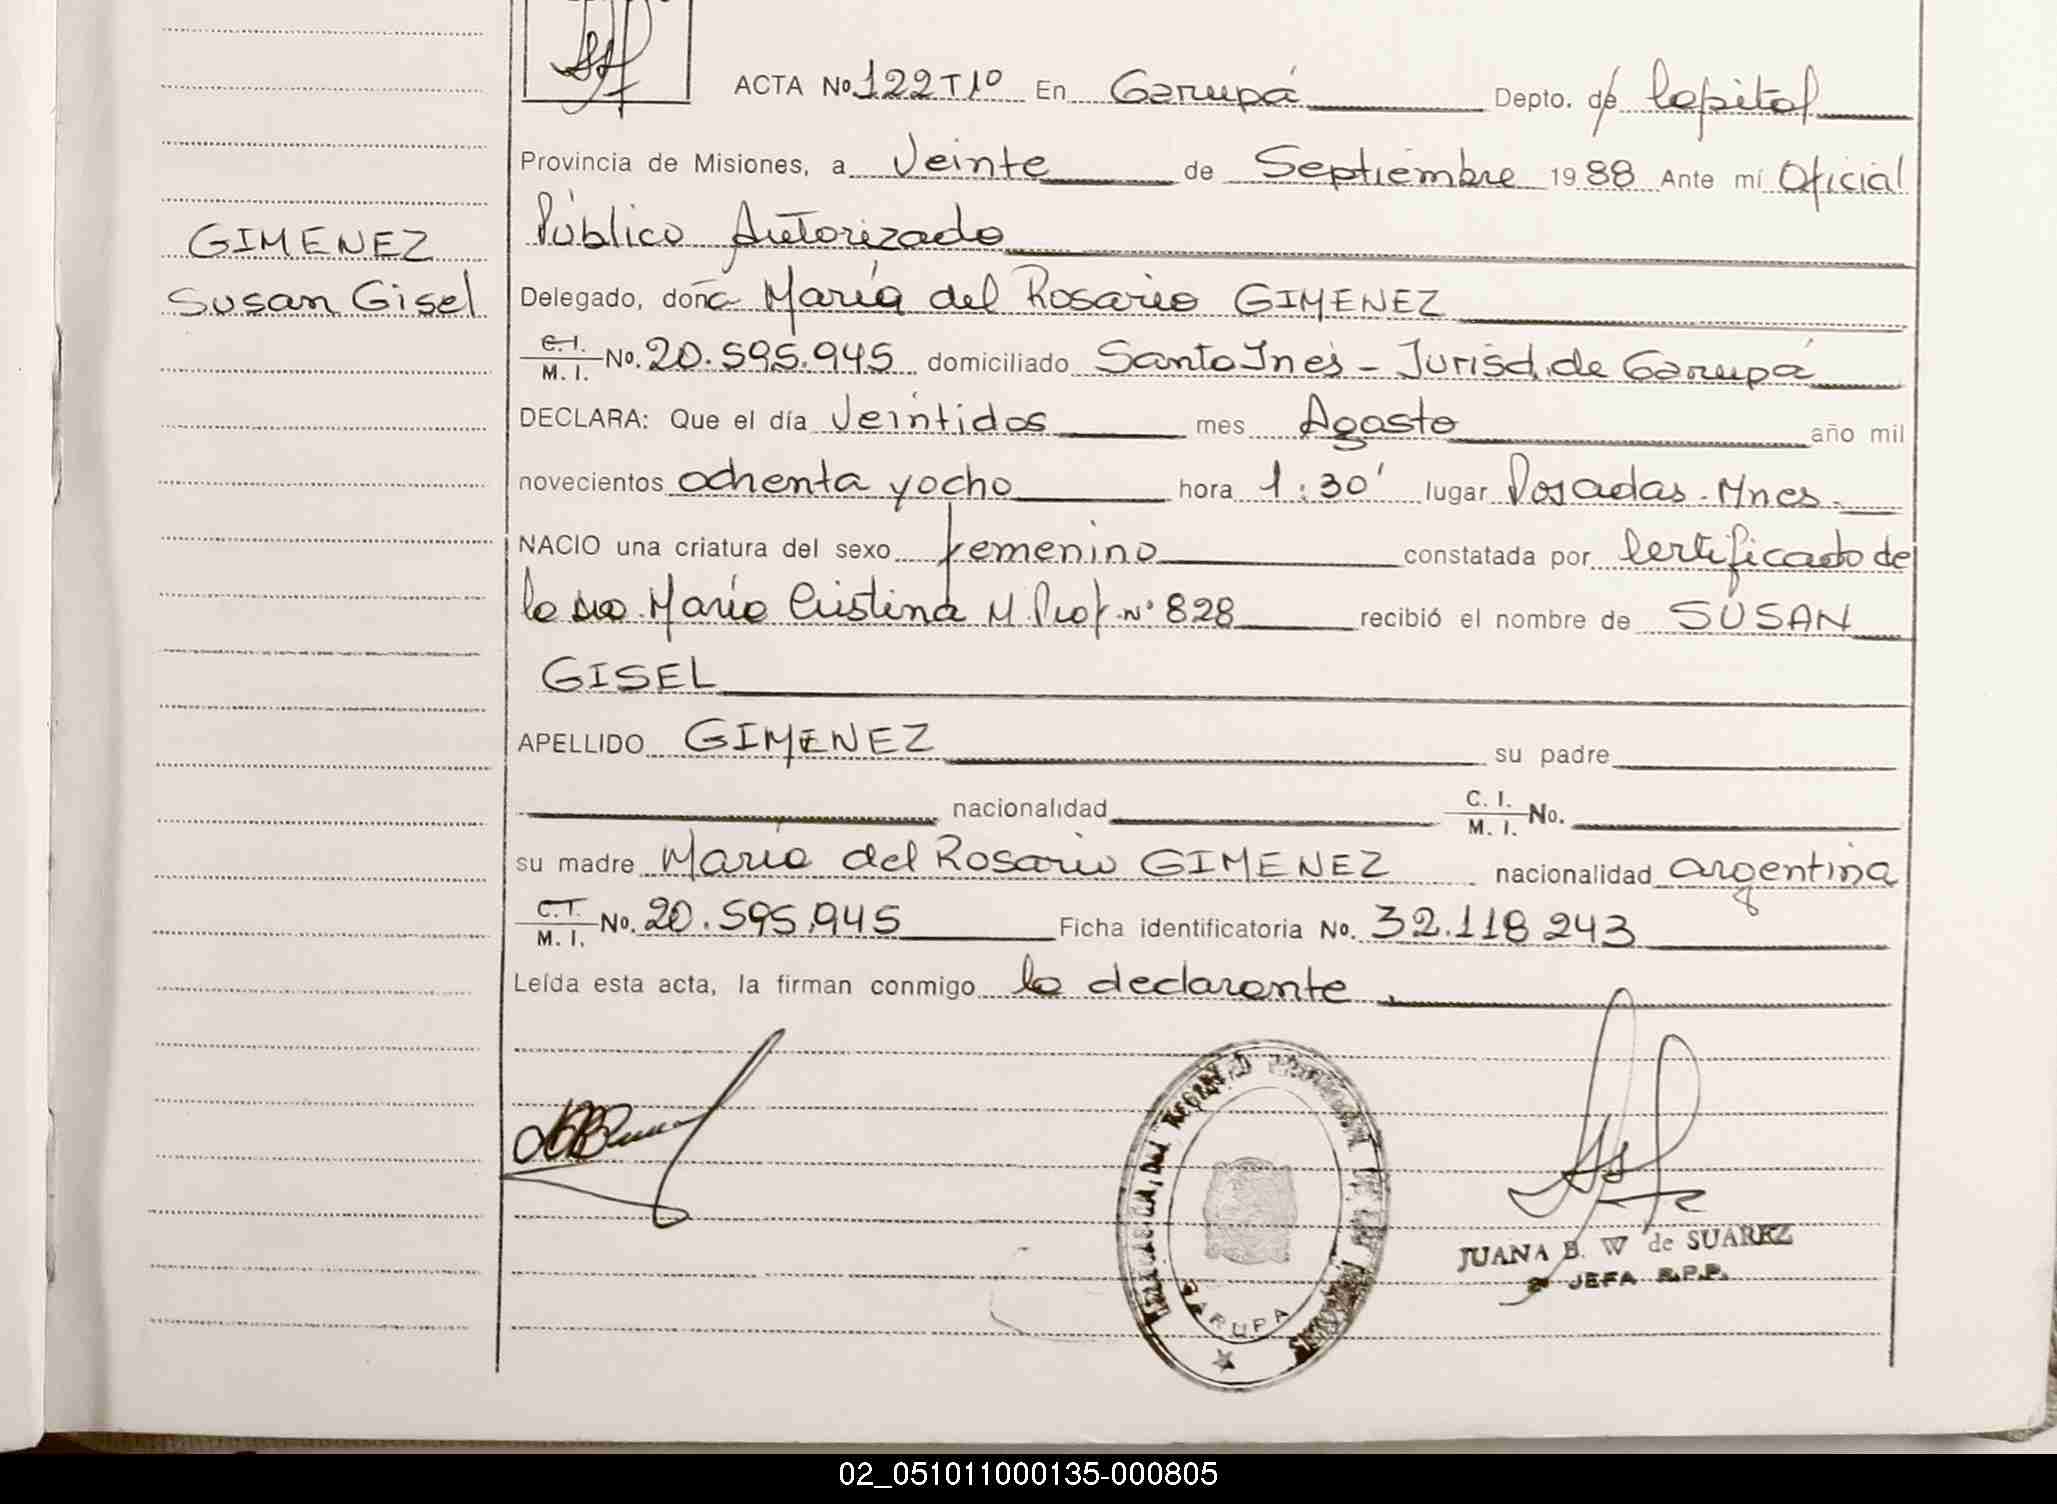 ACTA Nº 122 T1º En Garupá Depto. de Capital
Provincia de Misiones, a Veinte de Septiembre 1988 Ante mí Oficial
Público Autorizado
GIMENEZ
Susan Gisel
Delegado, doña María del Rosario GIMENEZ
C.I. M.I. No. 20.595.945 domiciliado Santa Inés - Jurisd. de Garupá
DECLARA: Que el día Veintidos mes Agosto año mil
novecientos ochenta y ocho hora 1:30' lugar Posadas - Mnes -
NACIO una criatura del sexo femenino constatada por Certificado de
la María Cristina M. Prof. Nº 828 recibió el nombre de SUSAN
GISEL
APELLIDO GIMENEZ su padre
nacionalidad C. I. M. I. No.
su madre María del Rosario GIMENEZ nacionalidad argentina
C.I. M. I. No. 20.595.945 Ficha identificatoria No. 32.118.243
Leída esta acta, la firman conmigo la declarante
GARUPA
JUANA B. W de SUAREZ
JEFA R.P.P.
02_051011000135-000805